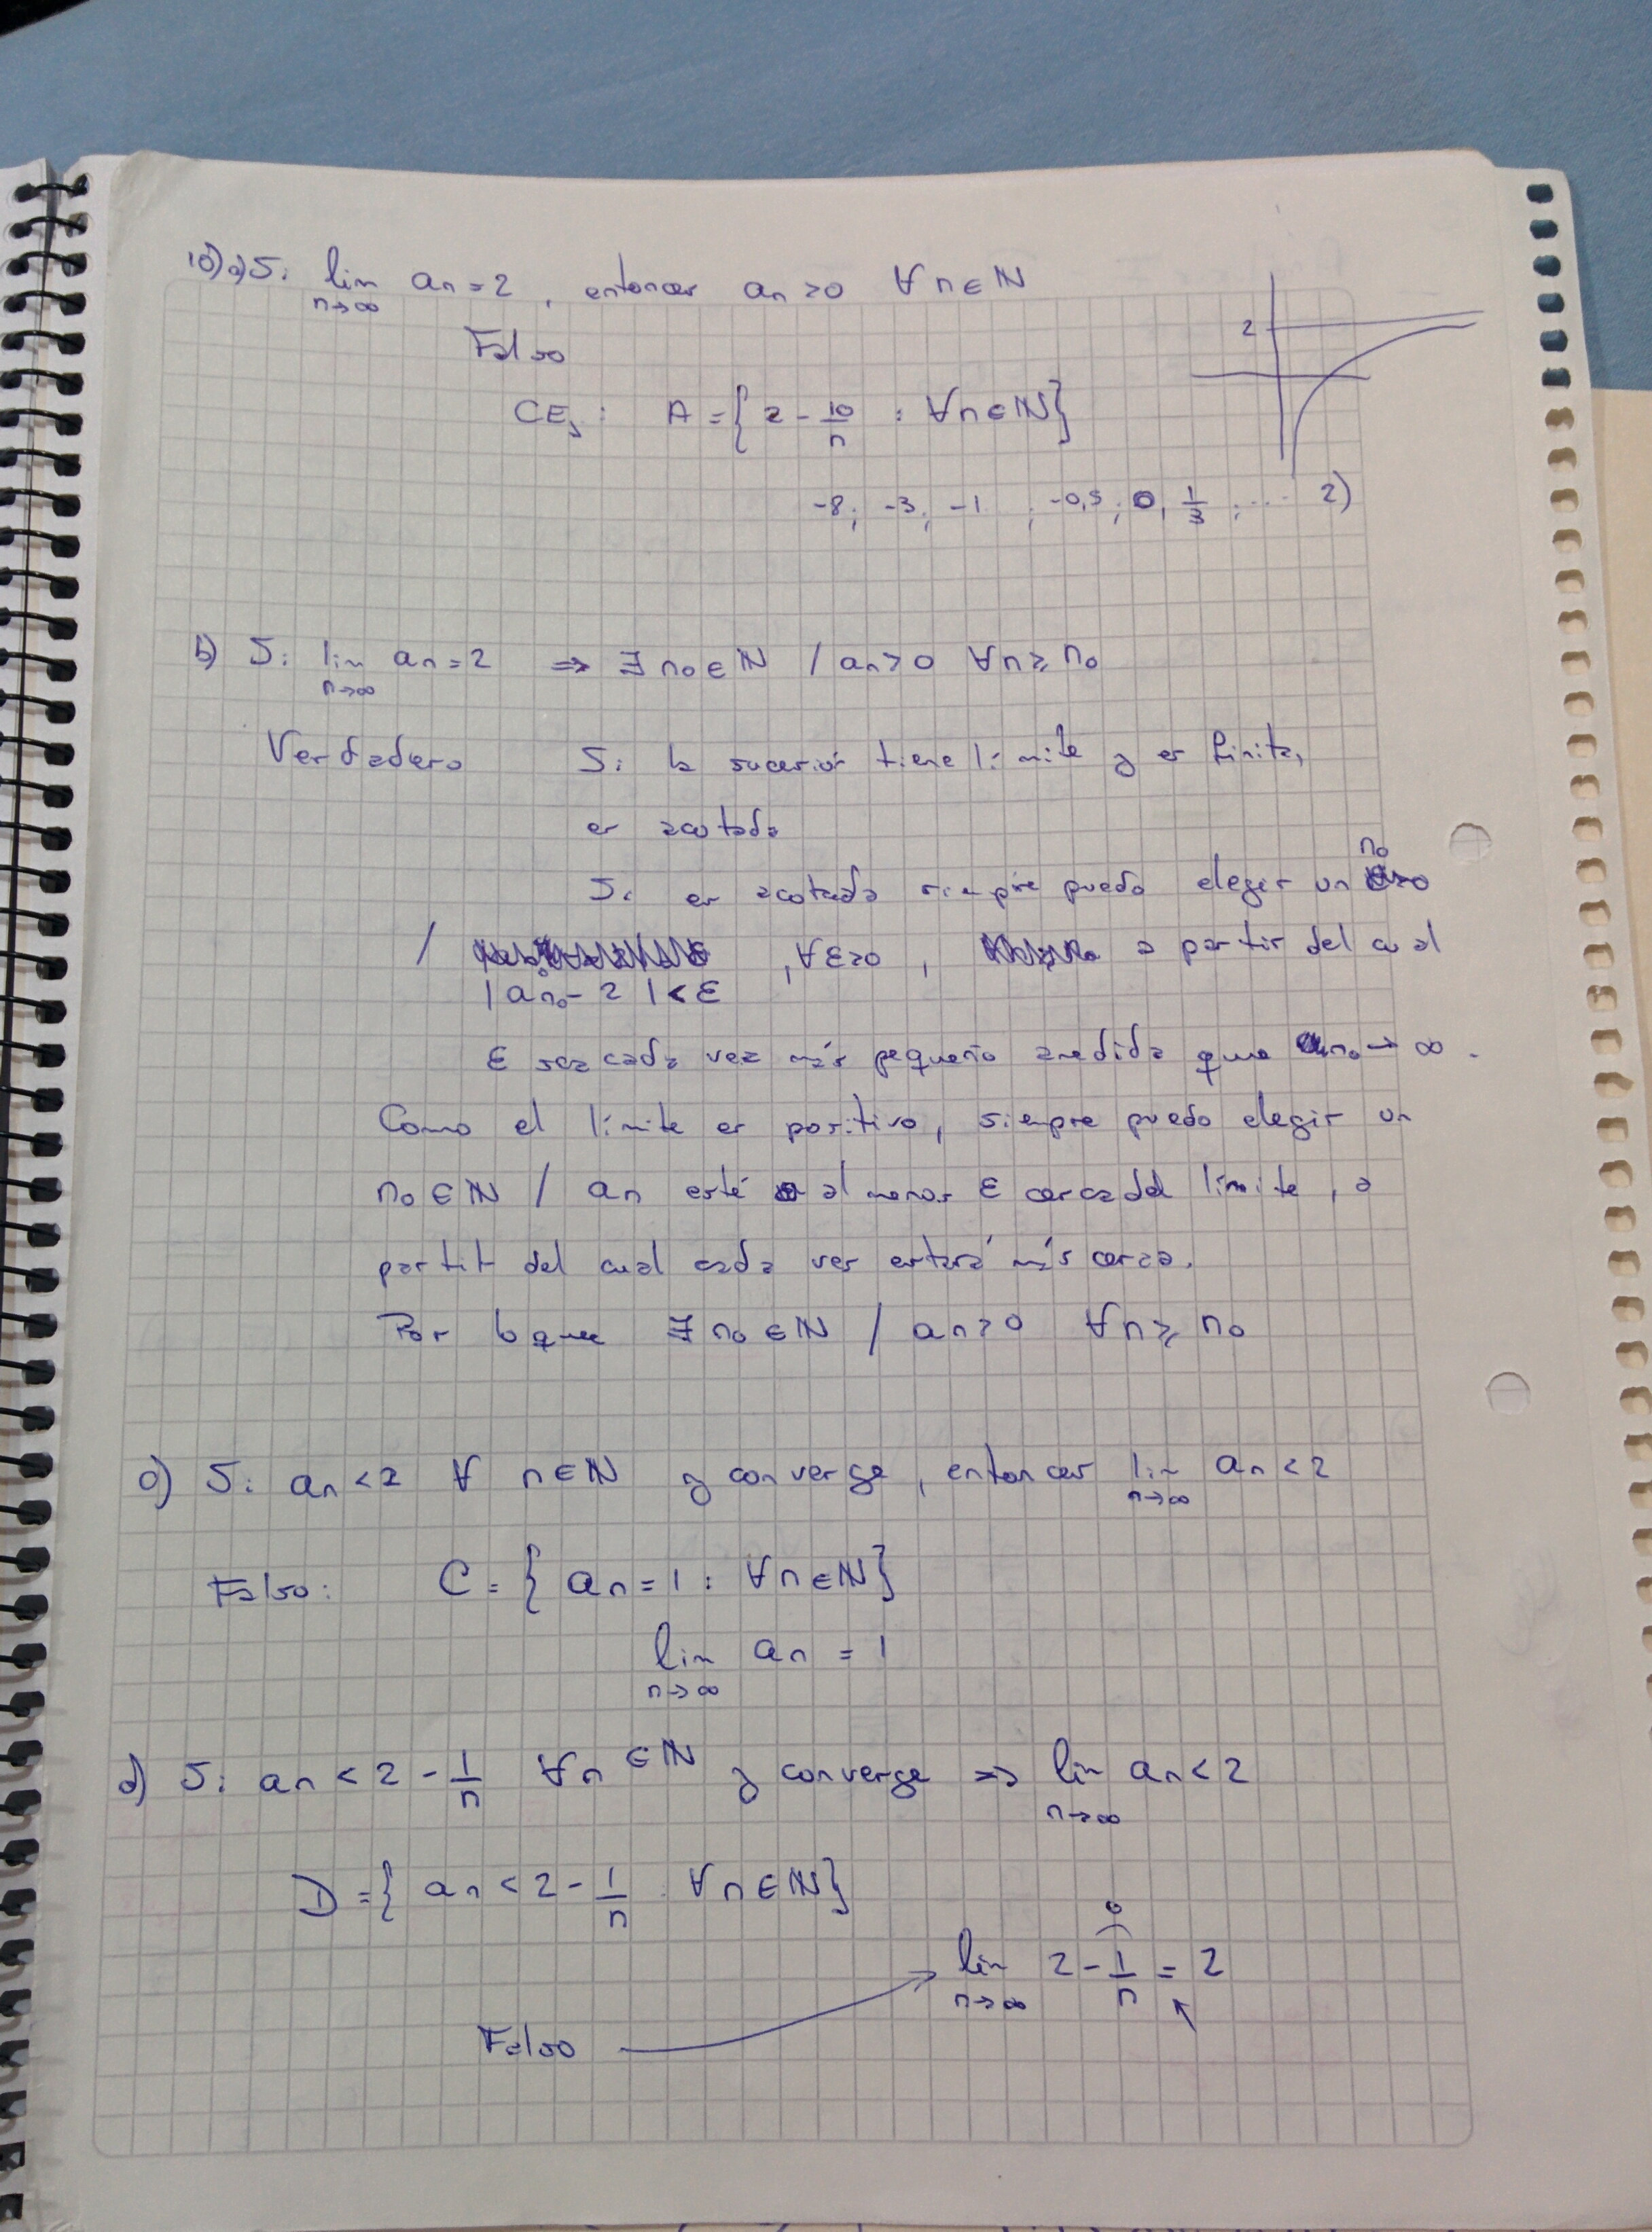 10) a) Si lim n→∞ an = 2 , entonces an > 0 ∀ n ∈ ℕ
2
Falso
CEj : A = { 2 - 10/n : ∀ n ∈ ℕ }
-8 ; -3 ; -1 ; -0,5 ; 0 , 1/3 ; ... 2)
b) Si lim n→∞ an = 2 ⇒ ∃ n0 ∈ ℕ / an > 0 ∀ n ≥ n0
Verdadero Si la sucesión tiene límite y es finita,
es acotada
Si es acotada siempre puedo elegir un n0
/ |an0 - 2| < ε , ∀ ε>0 , a partir del cual
ε sea cada vez más pequeño a medida que n0 → ∞ .
Como el límite es positivo, siempre puedo elegir un
n0 ∈ ℕ / an esté al menos ε cerca del límite , a
partir del cual cada vez estará más cerca.
Por lo que ∃ n0 ∈ ℕ / an > 0 ∀ n ≥ n0
c) Si an < 2 ∀ n ∈ ℕ y converge , entonces lim n→∞ an < 2
Falso: C = { an = 1 : ∀ n ∈ ℕ }
lim n→∞ an = 1
d) Si an < 2 - 1/n ∀ n ∈ ℕ y converge ⇒ lim n→∞ an < 2
D = { an < 2 - 1/n : ∀ n ∈ ℕ }
0
lim n→∞ 2 - 1/n = 2
Falso